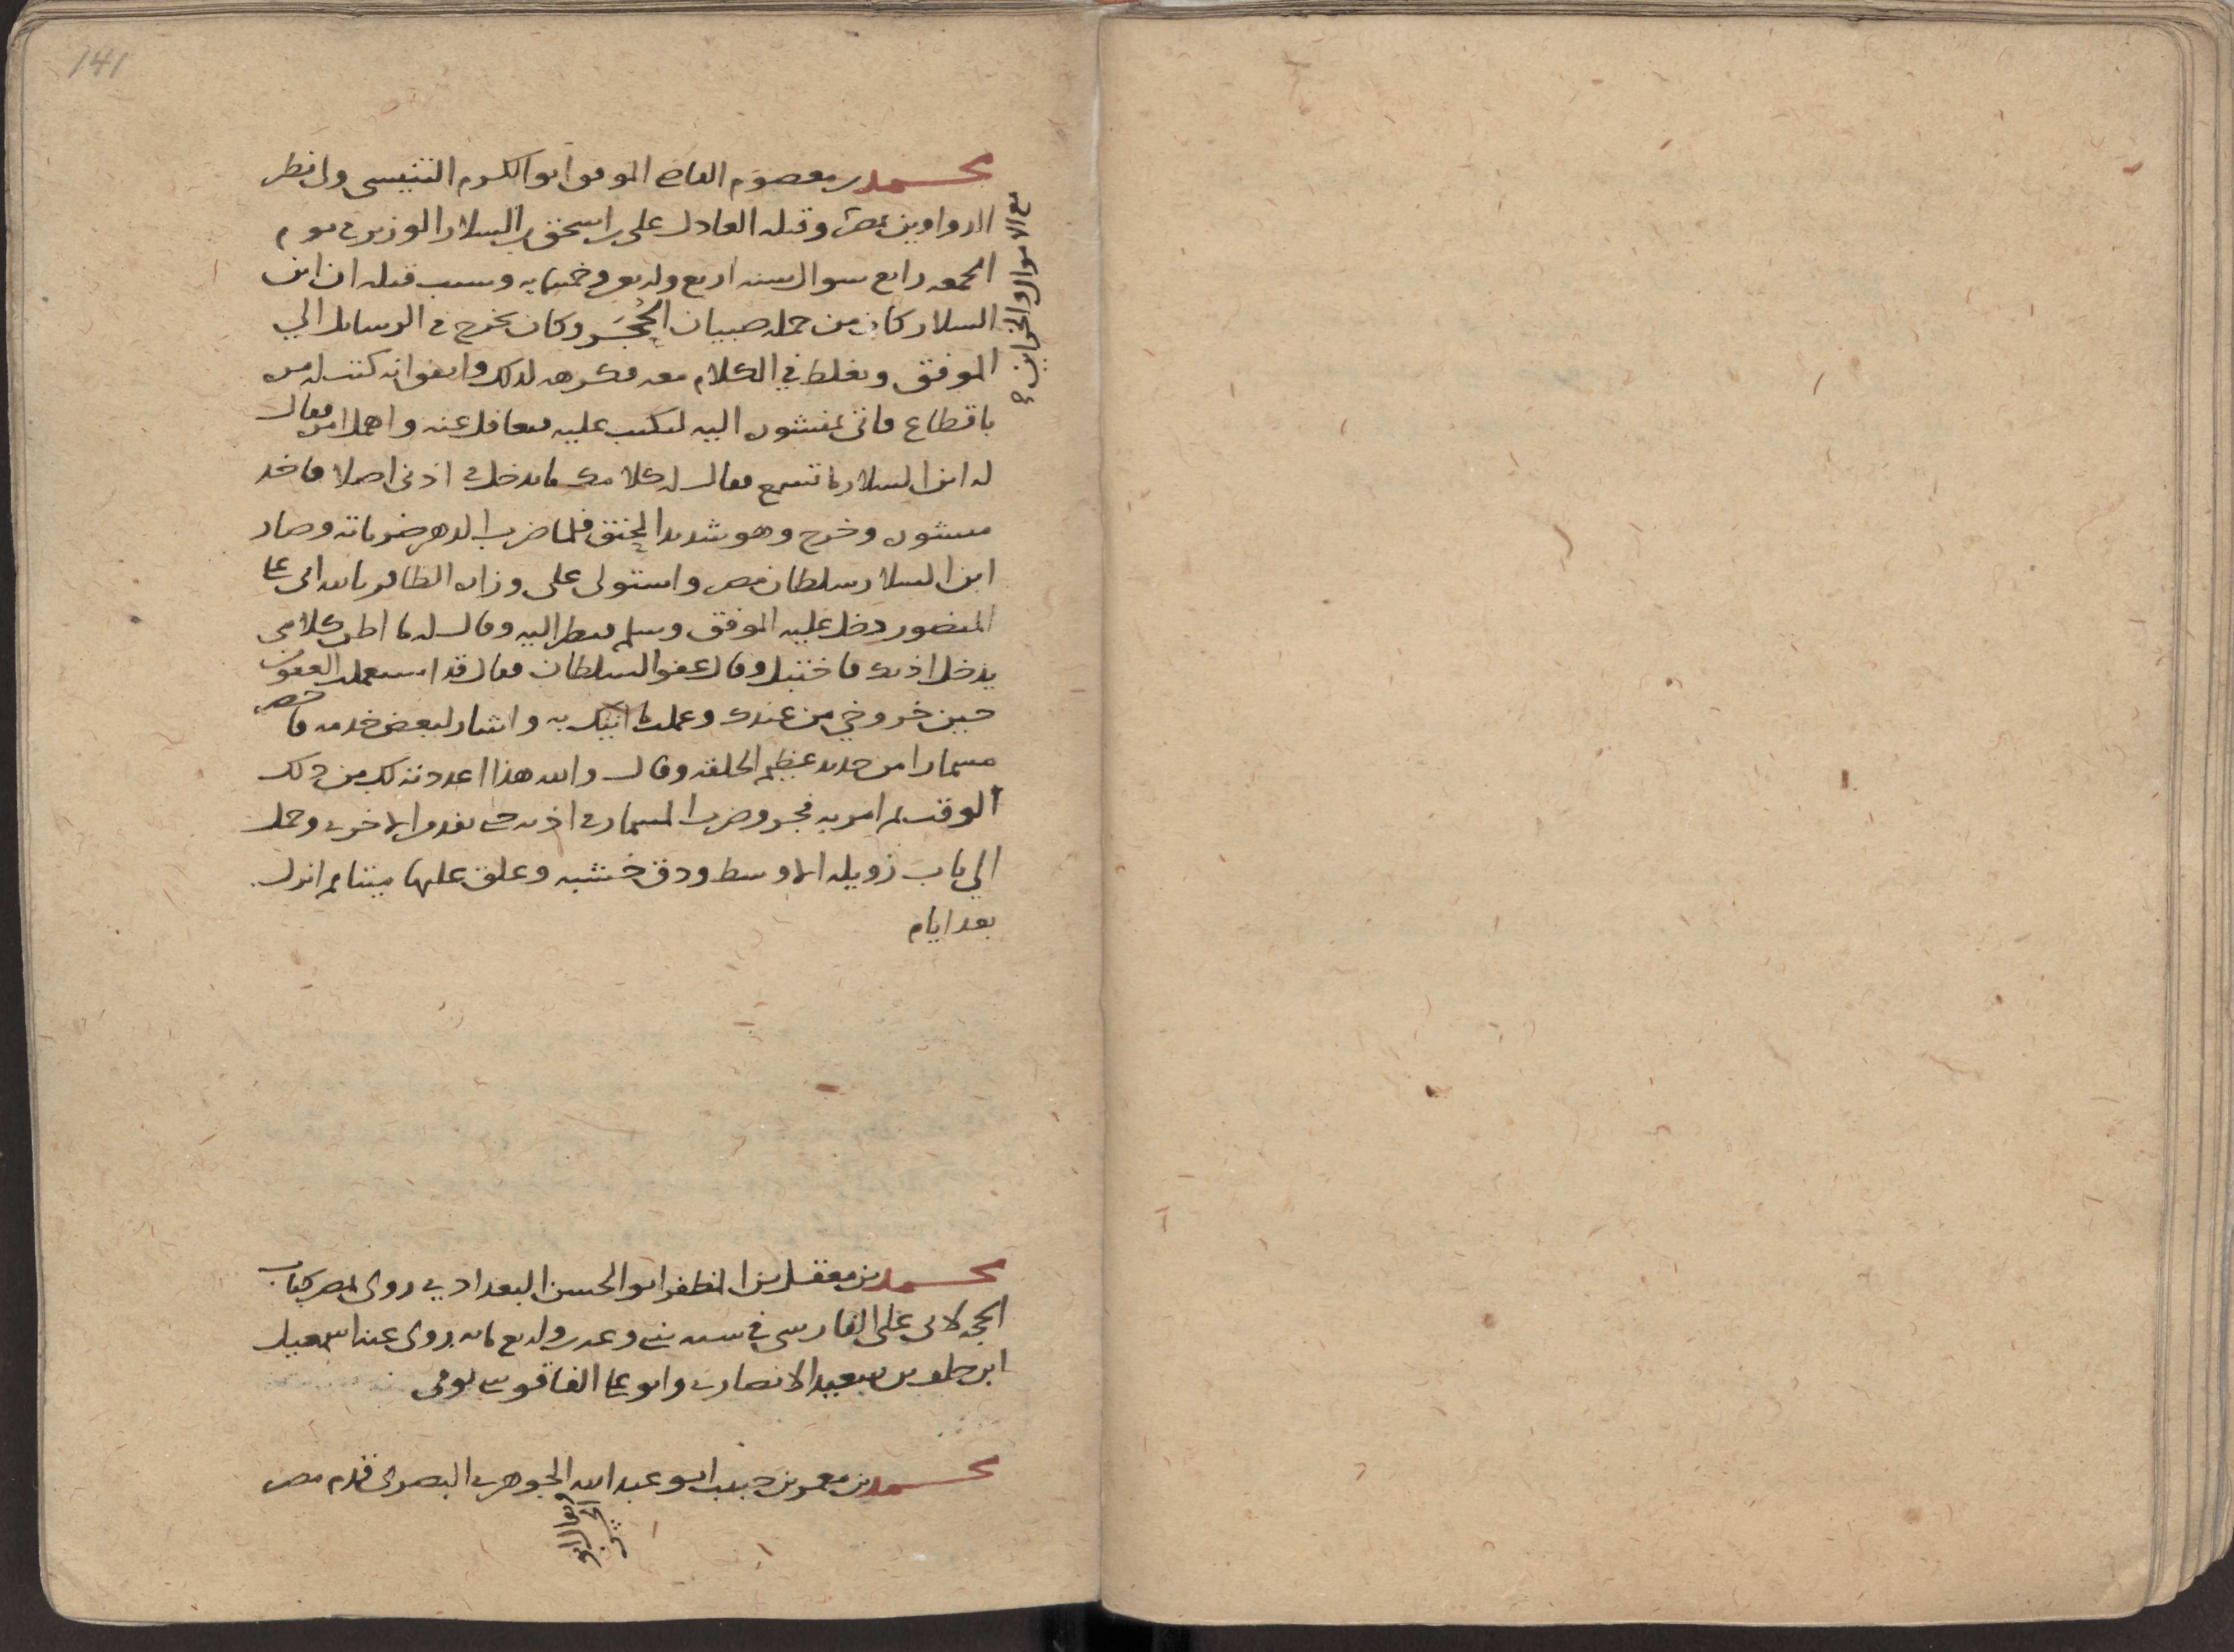 141
محمد بن معصوم القاضي الموفق ابو الكرم التنيسي ولي نظر
الدواوين بمصر وقتله العادل علي بن اسحق بن السلار الوزير في يوم
الجمعه رابع شوال سنه اربع واربعين وخمسمايه وسبب قتله ان ابن
السلار كان من جمله صبيان الحُجَر وكان يخرج في الرسايل الي
الموفق ويغلط في الكلام معه فكرهه لذلك واتفق انه كتب له مره
باقطاع فاتى بمنشوره اليه ليكتب عليه فتغافل عنه واهمل امره فقال
له ابن السلار ما تسمع فقال له كلامك ما يدخل في اذني اصلا فاخذ
منشوره وخرج وهو شديد الحنق فلما ضرب الدهر ضرباته وصار
ابن السلار سلطان مصر واستولى على وزاره الظافر بالله ابي علي
المنصور دخل عليه الموفق وسلم فنظر اليه وقال له ما اظن كلامي
يدخل اذنك فاختبل وقال عفو السلطان فقال قد استعملت العفو
حين خروجي من عندك وعملت ما اتيك به واشار لبعض خدمه فاحضر
مسمارا من حديد عظيم الخلقه وقال والله هذا اعددته لك من ذلك
الوقت ثم امر به فجر وضرب المسمار في اذنه حتى نفذ من الاخرى وحمل
الي باب زويله الاوسط ودق خشبه وعلق عليها ميتا ثم انزل
بعد ايام
مع الاموال والخزاين
محمد بن معقل بن المظفر ابو الحسن البغدادي روى بمصر كتاب
الحجه لابي علي الفارسي في سنه وعشرين واربع مايه روى عنه اسمعيل
ابن خلف بن سعيد الانصاري وابو علي الفاقوسي توفي
محمد بن معمر بن حبيب ابو عبد الله الجوهري البصري قدم مصر